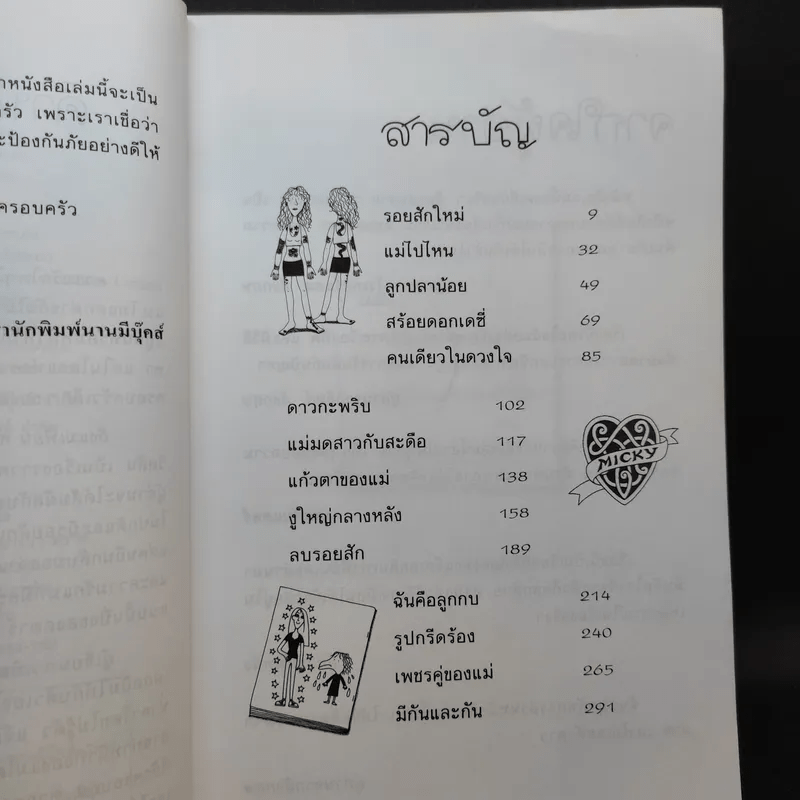 าหนังสือเล่มนี้จะเป็น
รัว เพราะเราเชื่อว่า
ะป้องกันภัยอย่างดีให้
ครอบครัว
านักพิมพ์นานมีบุ๊คส์
สารบัญ
รอยสักใหม่ 9
แม่ไปไหน 32
ลูกปลาน้อย 49
สร้อยดอกเดซี่ 69
คนเดียวในดวงใจ 85
ดาวกะพริบ 102
แม่มดสาวกับสะดือ 117
แก้วตาของแม่ 138
งูใหญ่กลางหลัง 158
ลบรอยสัก 189
MICKY
ฉันคือลูกกบ 214
รูปกรีดร้อง 240
เพชรคู่ของแม่ 265
มีกันและกัน 291